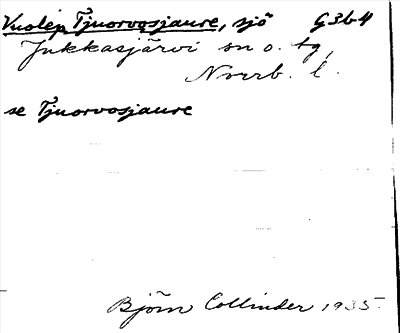 Vuolep Tjuorvosjaure, sjö G3b4
Jukkasjärvi sn o. tg,
Norrb. l.
se Tjuorvosjaure
Björn Collinder 1935